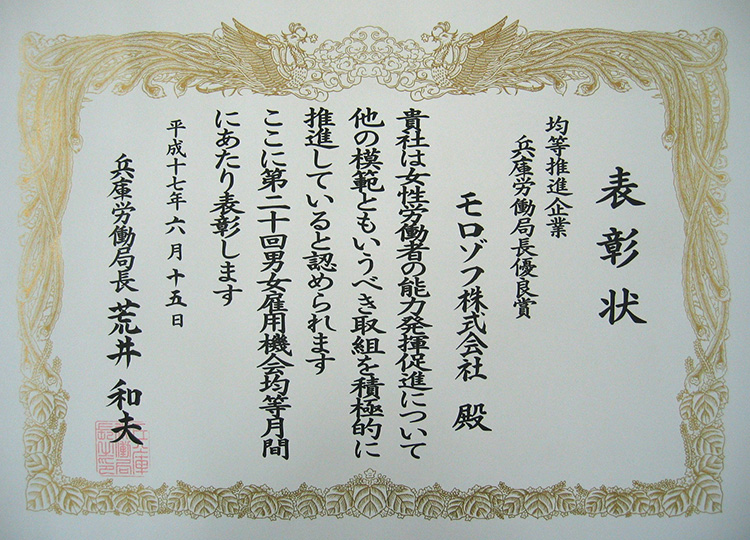 表彰状
均等推進企業
兵庫労働局長優良賞
モロゾフ株式会社 殿
貴社は女性労働者の能力発揮促進について
他の模範ともいうべき取組を積極的に
推進していると認められます
ここに第二十回男女雇用機会均等月間
にあたり表彰します
平成十七年六月十五日
兵庫労働局長 荒井 和夫
兵庫
労働局
長之印